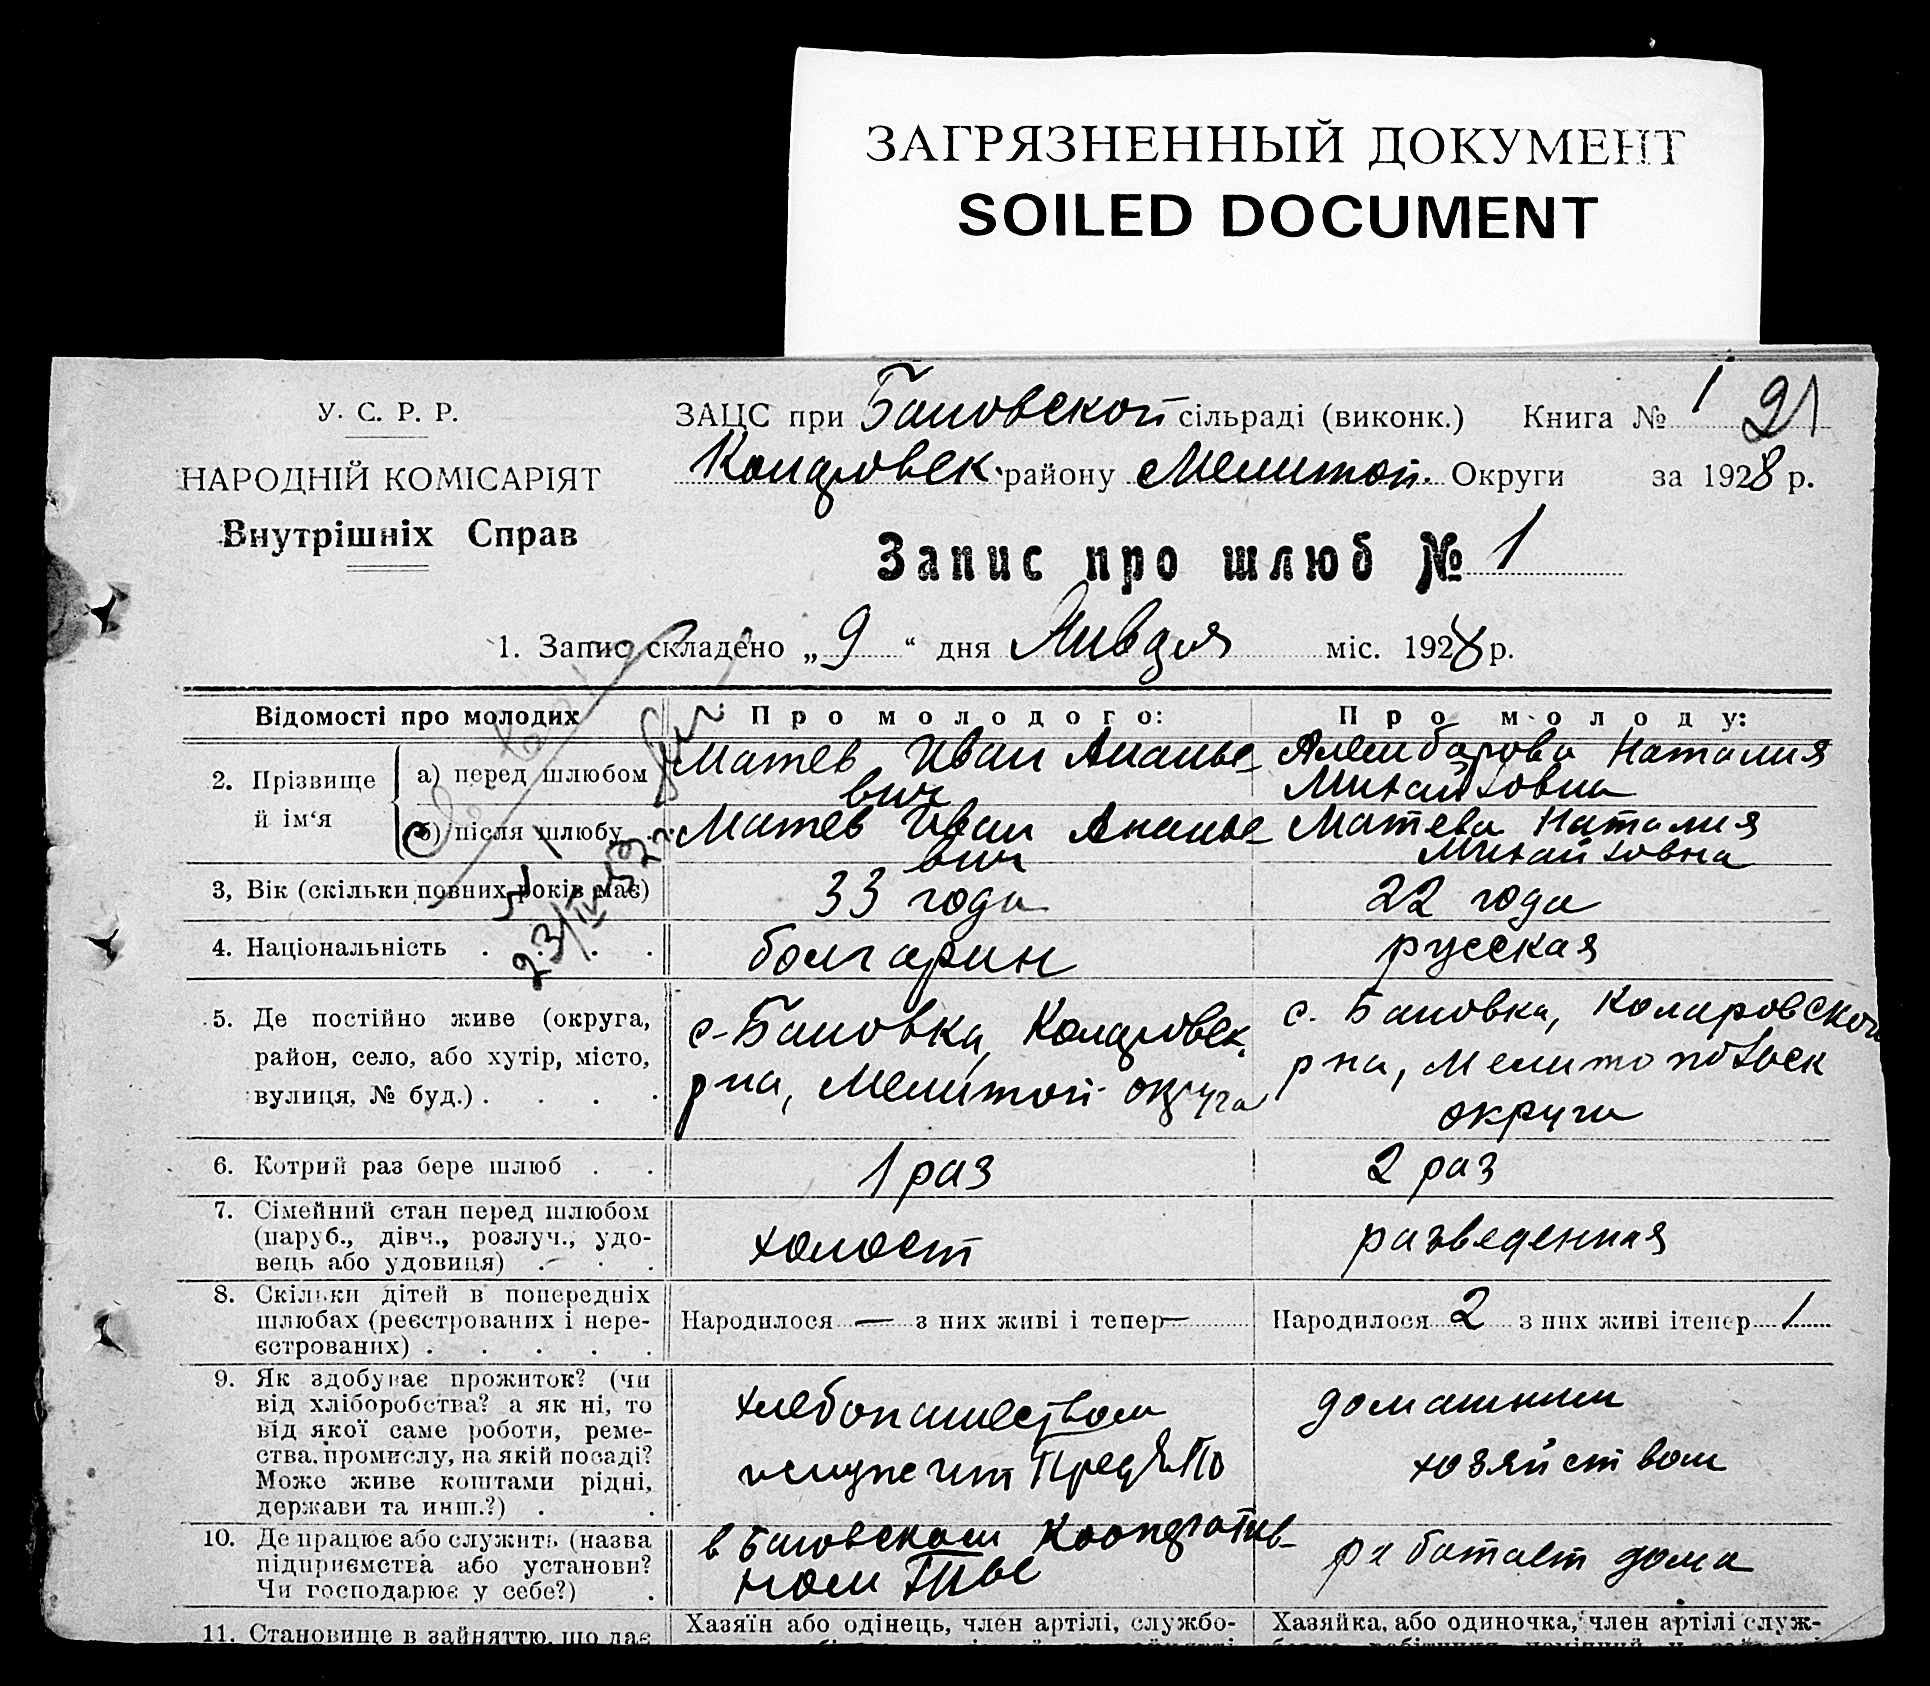 ЗАГРЯЗНЕННЫЙ ДОКУМЕНТ
SOILED DOCUMENT
У. С. Р. Р.
НАРОДНІЙ КОМІСАРІЯТ
Внутрішніх Справ
ЗАЦС при Бановской сільраді (виконк.) Книга № 1 21
Коларовск. району Мелитоп. Округи за 1928 р.
Запис про шлюб № 1
1. Запис складено „ 9 “ дня Января міс. 1928 р.
Відомості про молодих
Про молодого:
Про молоду:
2. Прізвище й ім‘я
а) перед шлюбом
Матев Иван Ананье-
вич
Наталия
Михайловна
б) після шлюбу
Матев Иван Ананье-
вич
Матева Наталия
Михайловна
3, Вік (скільки повних років має)
33 года
22 года
23/IV
4. Національність . . . .
болгарин
русская
5. Де постійно живе (округа,
район, село, або хутір, місто,
вулиця, № буд.) . . . .
с. Бановка, Коларовск.
рна, Мелитоп. округа
с. Бановка, Коларовской
рна, Мелитопольск
округи
6. Котрий раз бере шлюб . .
1 раз
2 раз
7. Сімейний стан перед шлюбом
(паруб., дівч., розлуч., удо-
вець або удовиця) . . .
холост
разведенная
8. Скільки дітей в попередніх
шлюбах (реєстрованих і нере-
єстрованих) . . . . .
Народилося — з них живі і тепер —
Народилося 2 з них живі ітепер 1
9. Як здобуває прожиток? (чи
від хліборобства? а як ні, то
від якої саме роботи, реме-
ства, промислу, на якій посаді?
Може живе коштами рідні,
держави та инш.?) . .
хлебопашеством
и служит
домашним
хозяйством
10. Де працює або служить (назва
підприємства або установи?
Чи господарює у себе?) .
в Бановском Кооператив-
ном
работает дома
11. Становище в зайняттю, що дає
Хазяїн або одінець, член артілі, службо-
Хазяйка, або одиночка, член артілі служ-